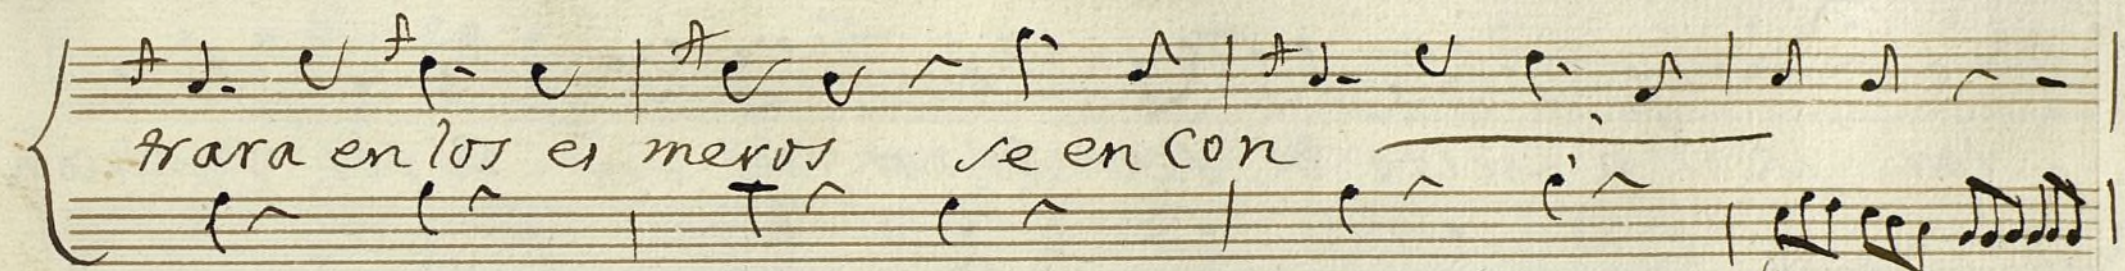 trara en los es meros se en con